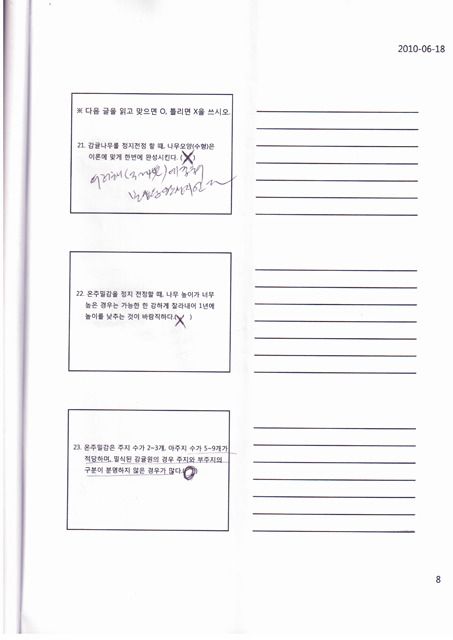 2010-06-18
※ 다음 글을 읽고 맞으면 O, 틀리면 X을 쓰시오.
21. 감귤나무를 정지전정 할 때, 나무모양(수형)은
이론에 맞게 한번에 완성시킨다. (X)
22. 온주밀감을 정지 전정할 때, 나무 높이가 너무
높은 경우는 가능한 한 강하게 잘라내어 1년에
높이를 낮추는 것이 바람직하다.(X)
23. 온주밀감은 주지 수가 2~3개, 아주지 수가 5~9개가
적당하며, 밀식된 감귤원의 경우 주지와 부주지의
구분이 분명하지 않은 경우가 많다.(O)
8